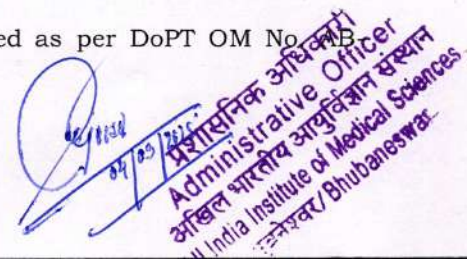 ed as per DoPT OM No. AB-
04/03/2025
प्रशासनिक अधिकारी
Administrative Officer
अखिल भारतीय आयुर्विज्ञान संस्थान
ll India Institute of Medical Sciences
भुवनेश्वर/Bhubaneswar